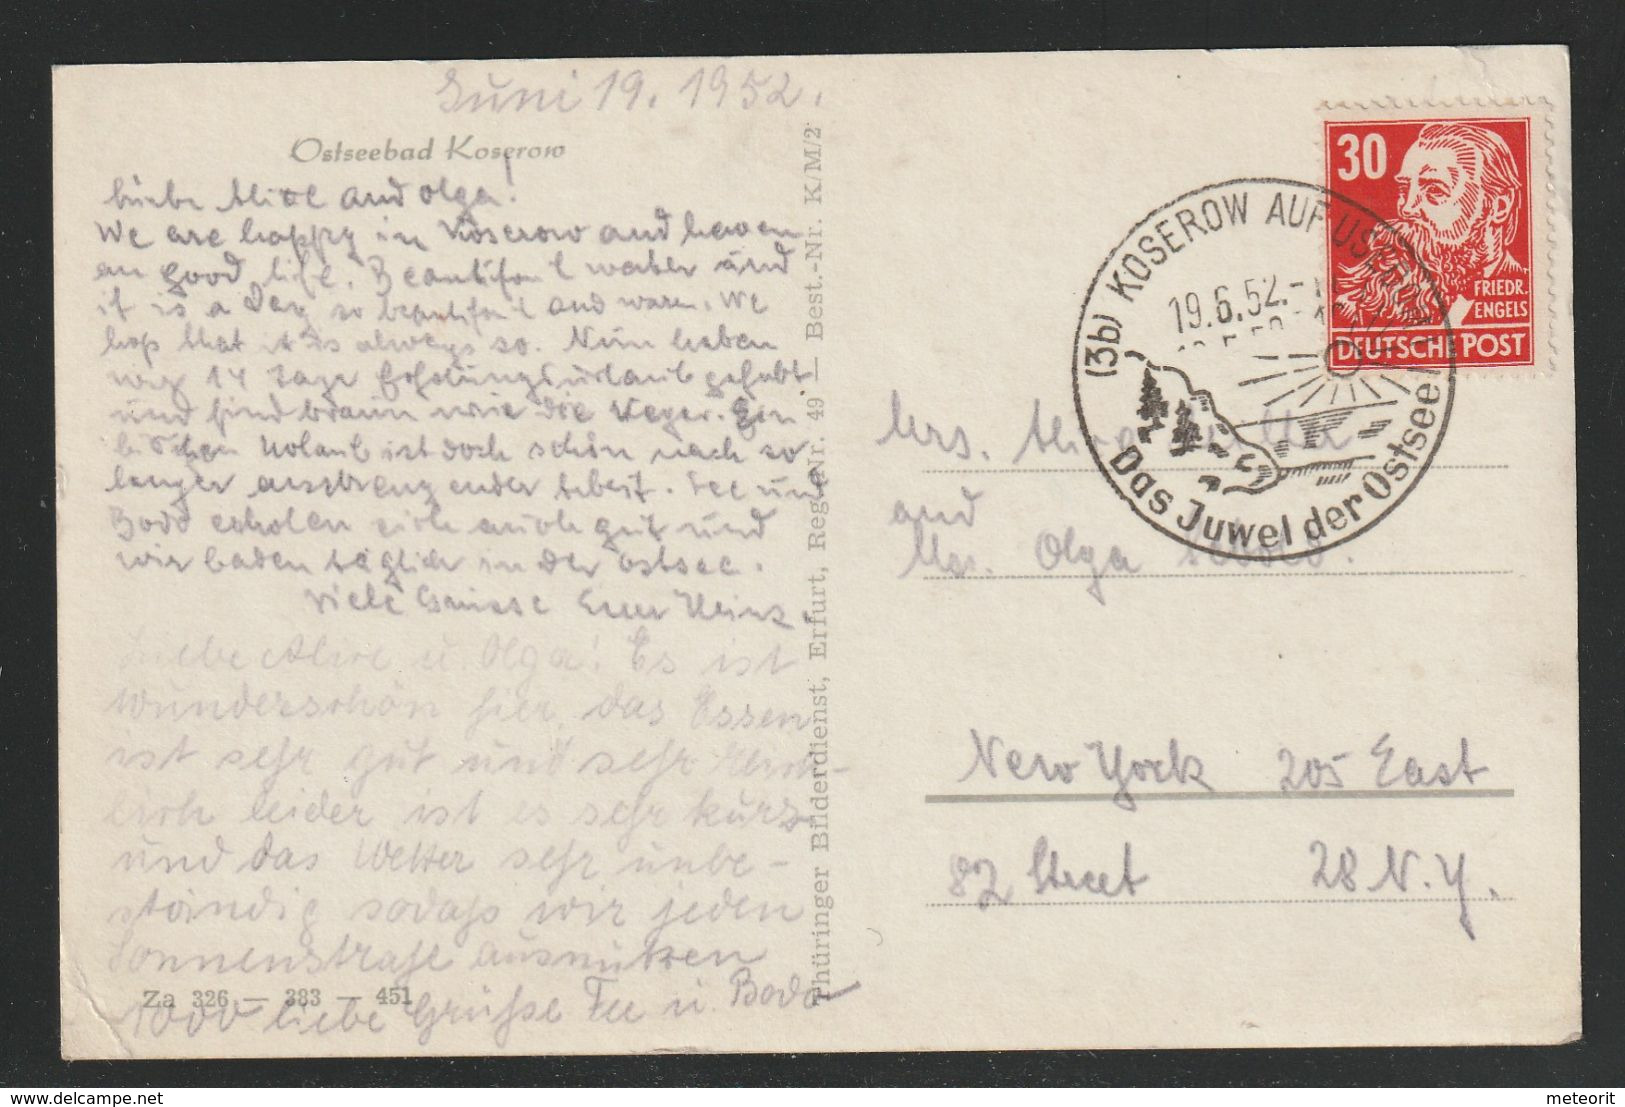 Juni 19. 1952.
Ostseebad Koserow
Liebe Alice and Olga!
We are happy in Koserow and haven
an good life. Beautifoul water and
it is a Day so beautifoul and warm. We
hop that it is always so. Nun haben
wir 14 Tage Erholungsurlaub gehabt
und sind braun wie die Neger. Ein
bischen Urlaub ist doch schön nach so
langer anstrengender Arbeit. Fee und
Bodo erholen sich auch gut und
wir baden täglich in der Ostsee.
Viele Grüsse Euer Heinz.
Liebe Alice u. Olga! Es ist
wunderschön hier, das Essen
ist sehr gut und sehr
leider ist es sehr kurz
und das Wetter sehr unbe-
ständig sodaß wir jeden
Sonnenstrahl ausnutzen
1000 liebe Grüße Fee u. Bodo
Za 326 — 383 — 451
Thüringer Bilderdienst, Erfurt, Reg.-Nr. 49 — Best.-Nr. K/M/2
30
FRIEDR.
ENGELS
DEUTSCHE POST
(3b) KOSEROW AUF USEDOM
19.6.52.
Das Juwel der Ostsee
Mrs.
and
Mrs. Olga
New York 205 East
82 Street 28 N.Y.
delcampe.net
meteorit